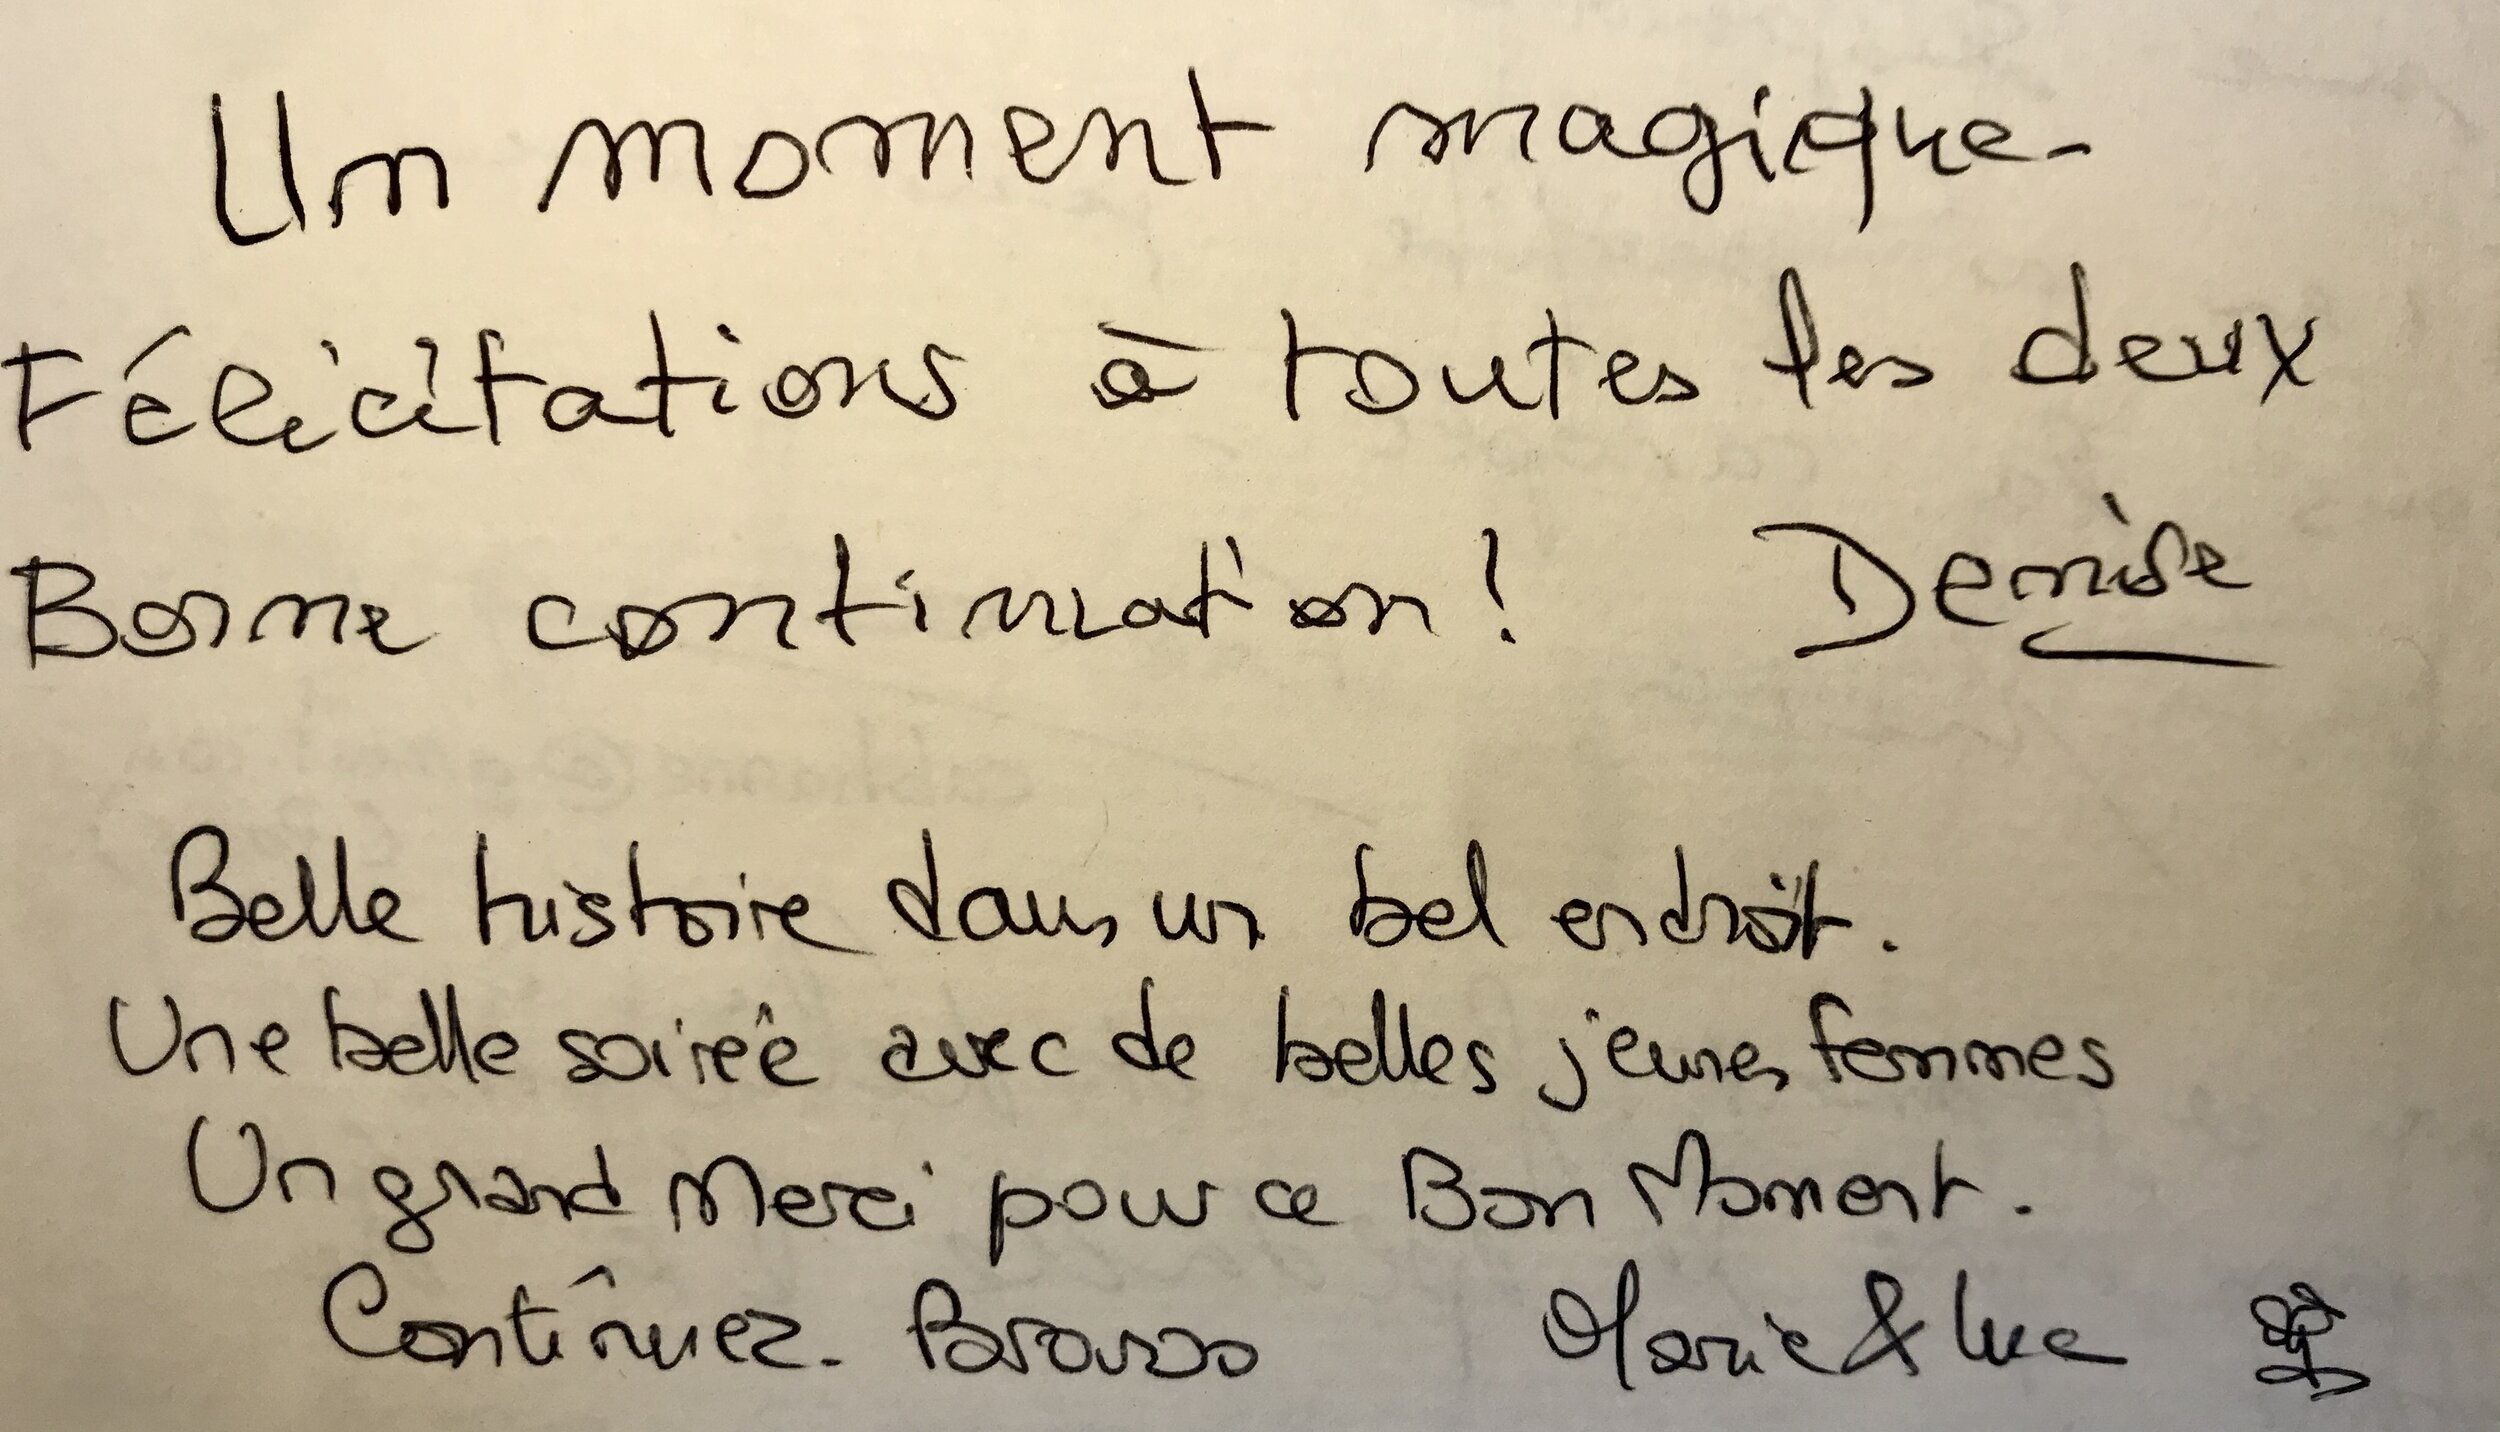 Un moment magique-
Félicitations à toutes les deux
Bonne continuation ! Denise
Belle histoire dans un bel endroit.
Une belle soirée avec de belles jeunes femmes
Un grand Merci pour ce Bon Moment.
Continuez. Bravoo Marie & Luc